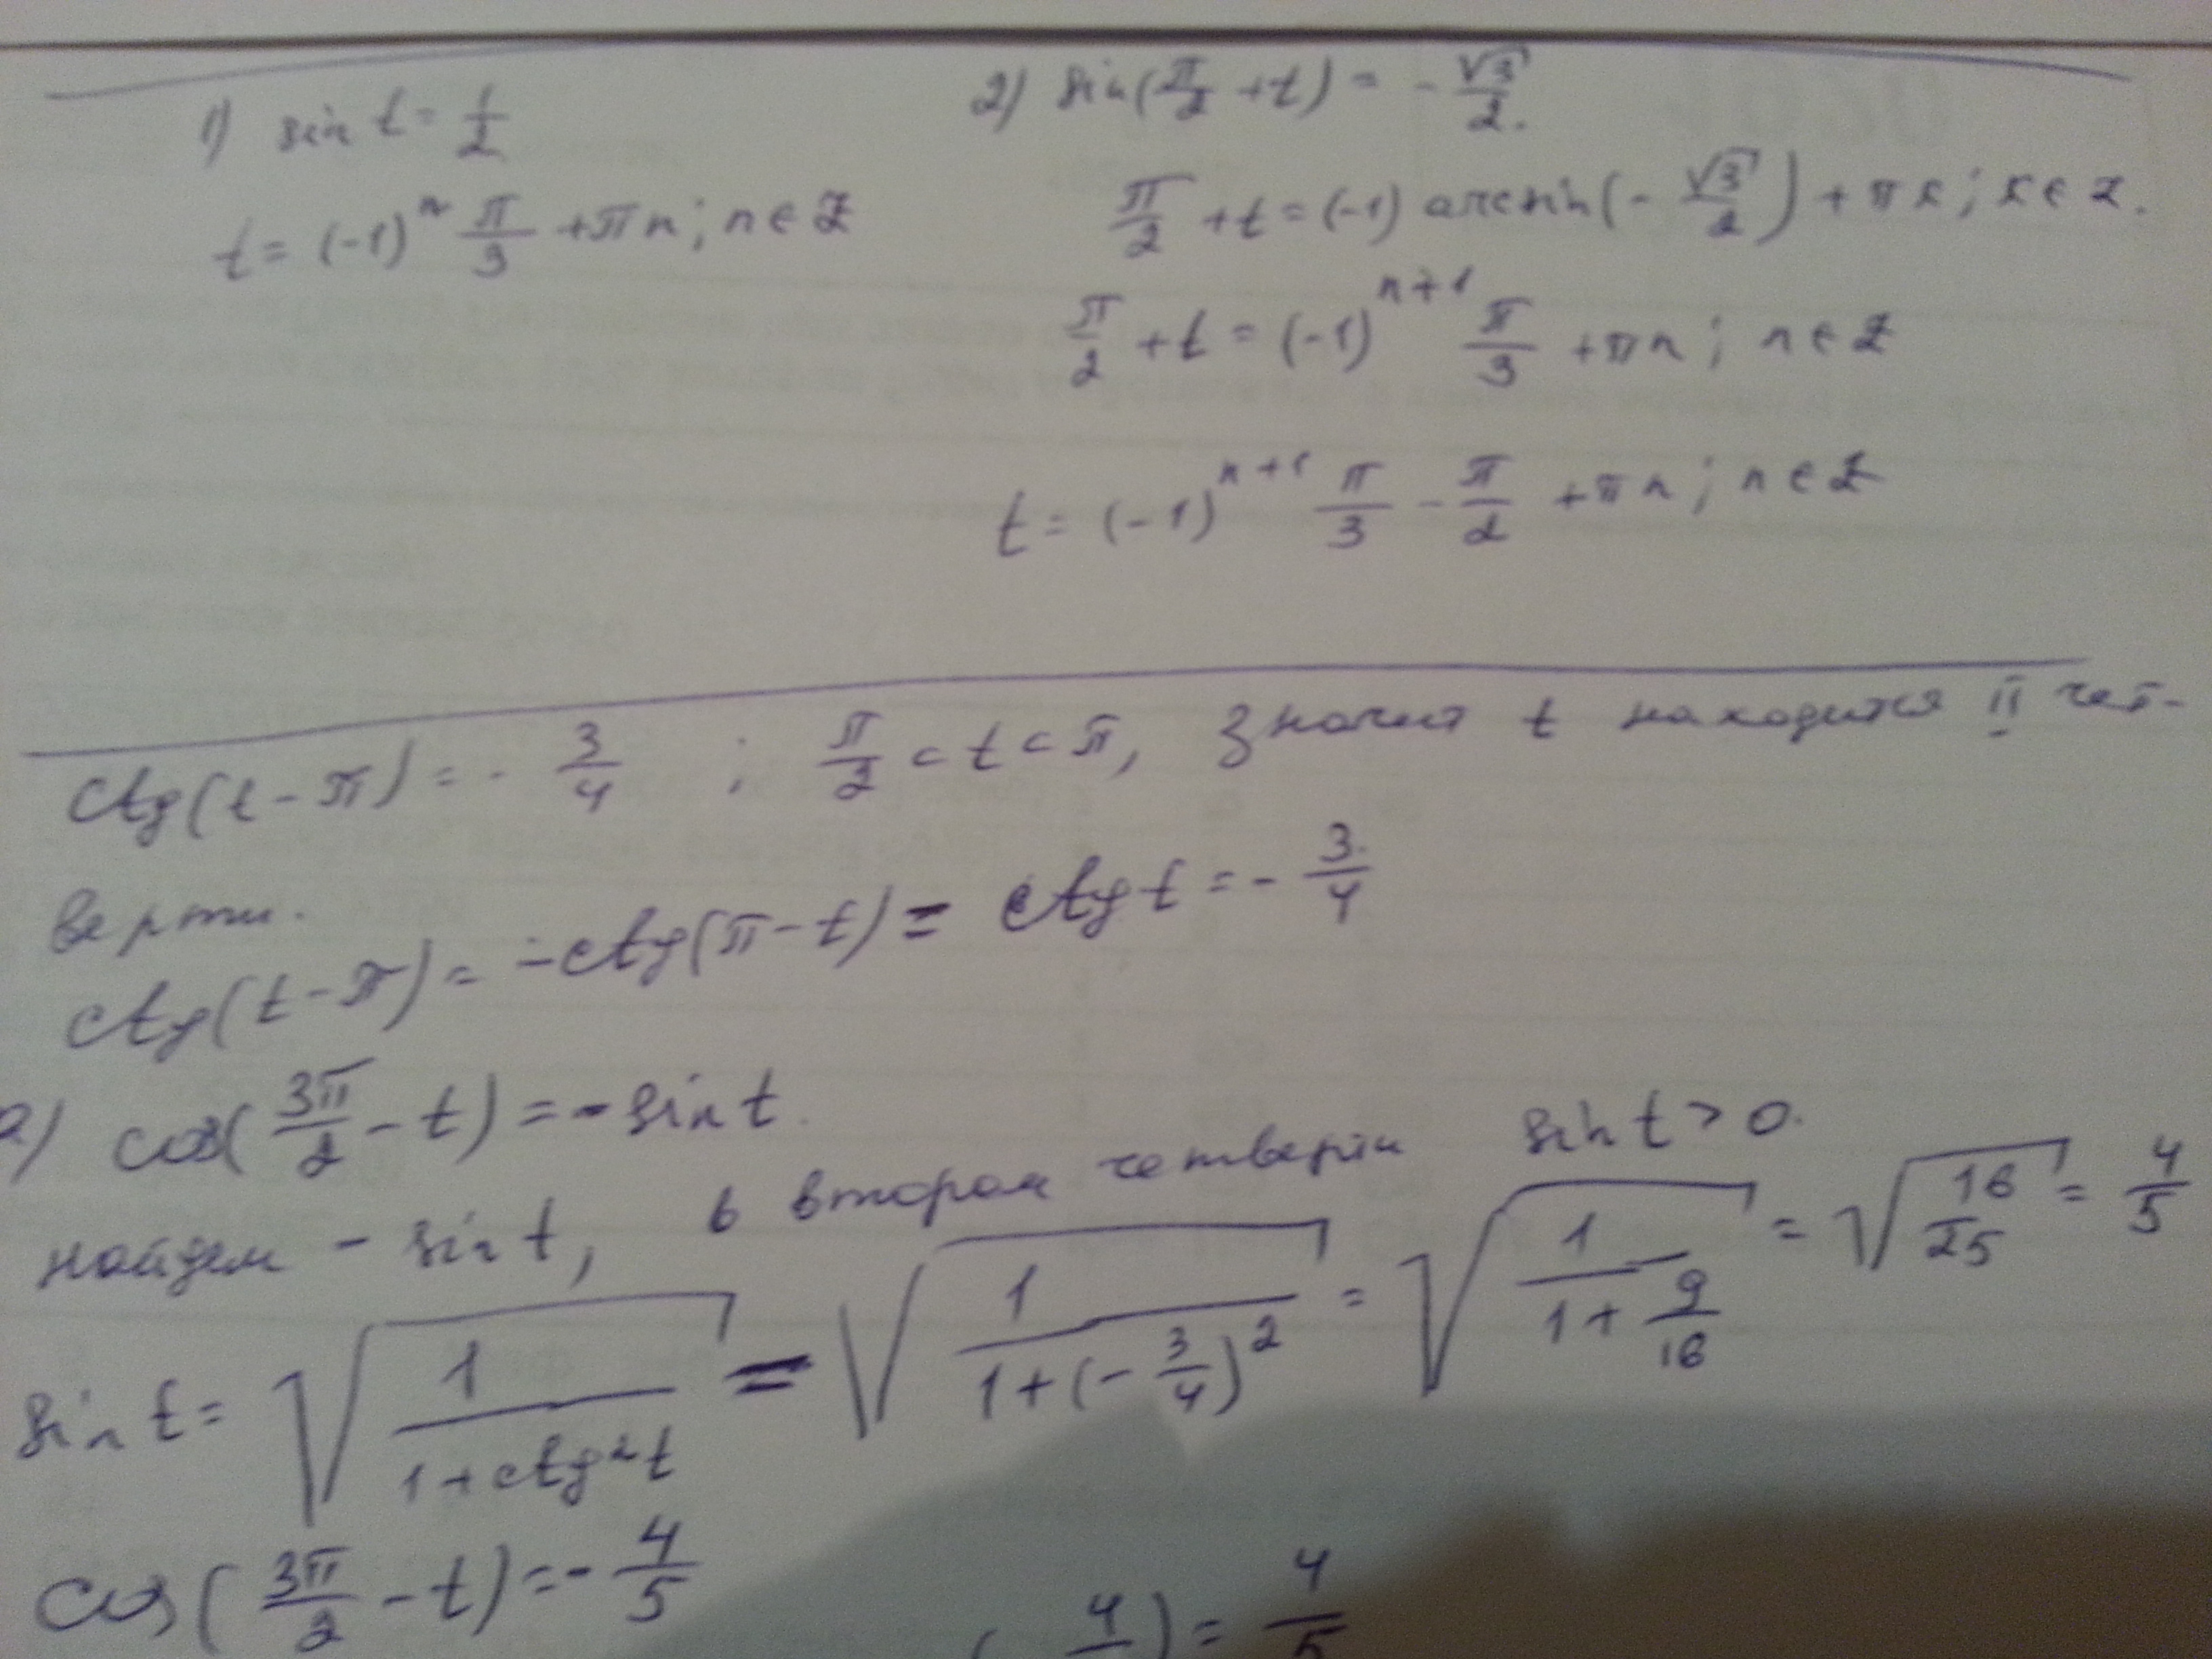 1) sin t = 1/2
t = (-1)^n π/3 + πn; n ∈ Z
2) sin(π/2 + t) = - √3/2.
π/2 + t = (-1) arcsin(- √3/2) + πk; k ∈ Z.
π/2 + t = (-1)^(n+1) π/3 + πn; n ∈ Z
t = (-1)^(n+1) π/3 - π/2 + πn; n ∈ Z
ctg(t - π) = - 3/4 ; π/2 < t < π, Значит t находится II чет-
верти.
ctg(t - π) = -ctg(π - t) = ctg t = - 3/4
а) cos(3π/2 - t) = - sin t.
найдем - sin t, в втором четверти sin t > 0.
sin t = √(1/(1 + ctg²t)) = √(1/(1 + (- 3/4)²)) = √(1/(1 + 9/16)) = √(16/25) = 4/5
cos(3π/2 - t) = - 4/5
( 4 ) = 4/5